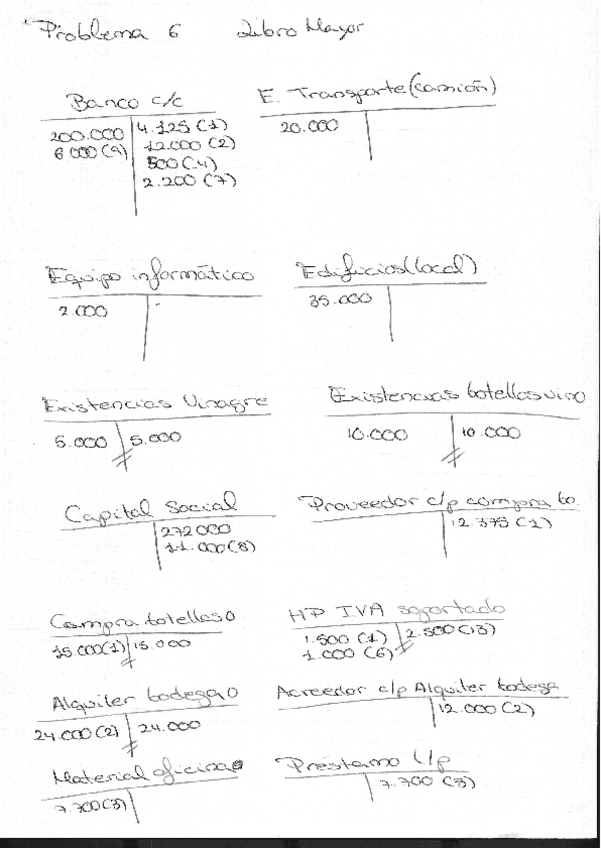 Problema 6 Libro Mayor
Banco c/c
200.000 4.125 (1)
6 000 (9) 12.000 (2)
500 (4)
2.200 (7)
E. Transporte (camión)
20.000
Equipo informático
2.000
Edificios (local)
35.000
Existencias Vinagre
5.000 5.000
Existencias botellas vino
10.000 10.000
Capital Social
272000
11.000 (8)
Proveedor c/p compra bo.
12.375 (1)
Compra botellas
15.000 (1) 15.000
HP IVA soportado
1.500 (1) 2.500 (13)
1.000 (6)
Alquiler bodega
24.000 (2) 24.000
Acreedor c/p Alquiler bodega
12.000 (2)
Material oficina
7.700 (3)
Prestamo l/p
7.700 (3)